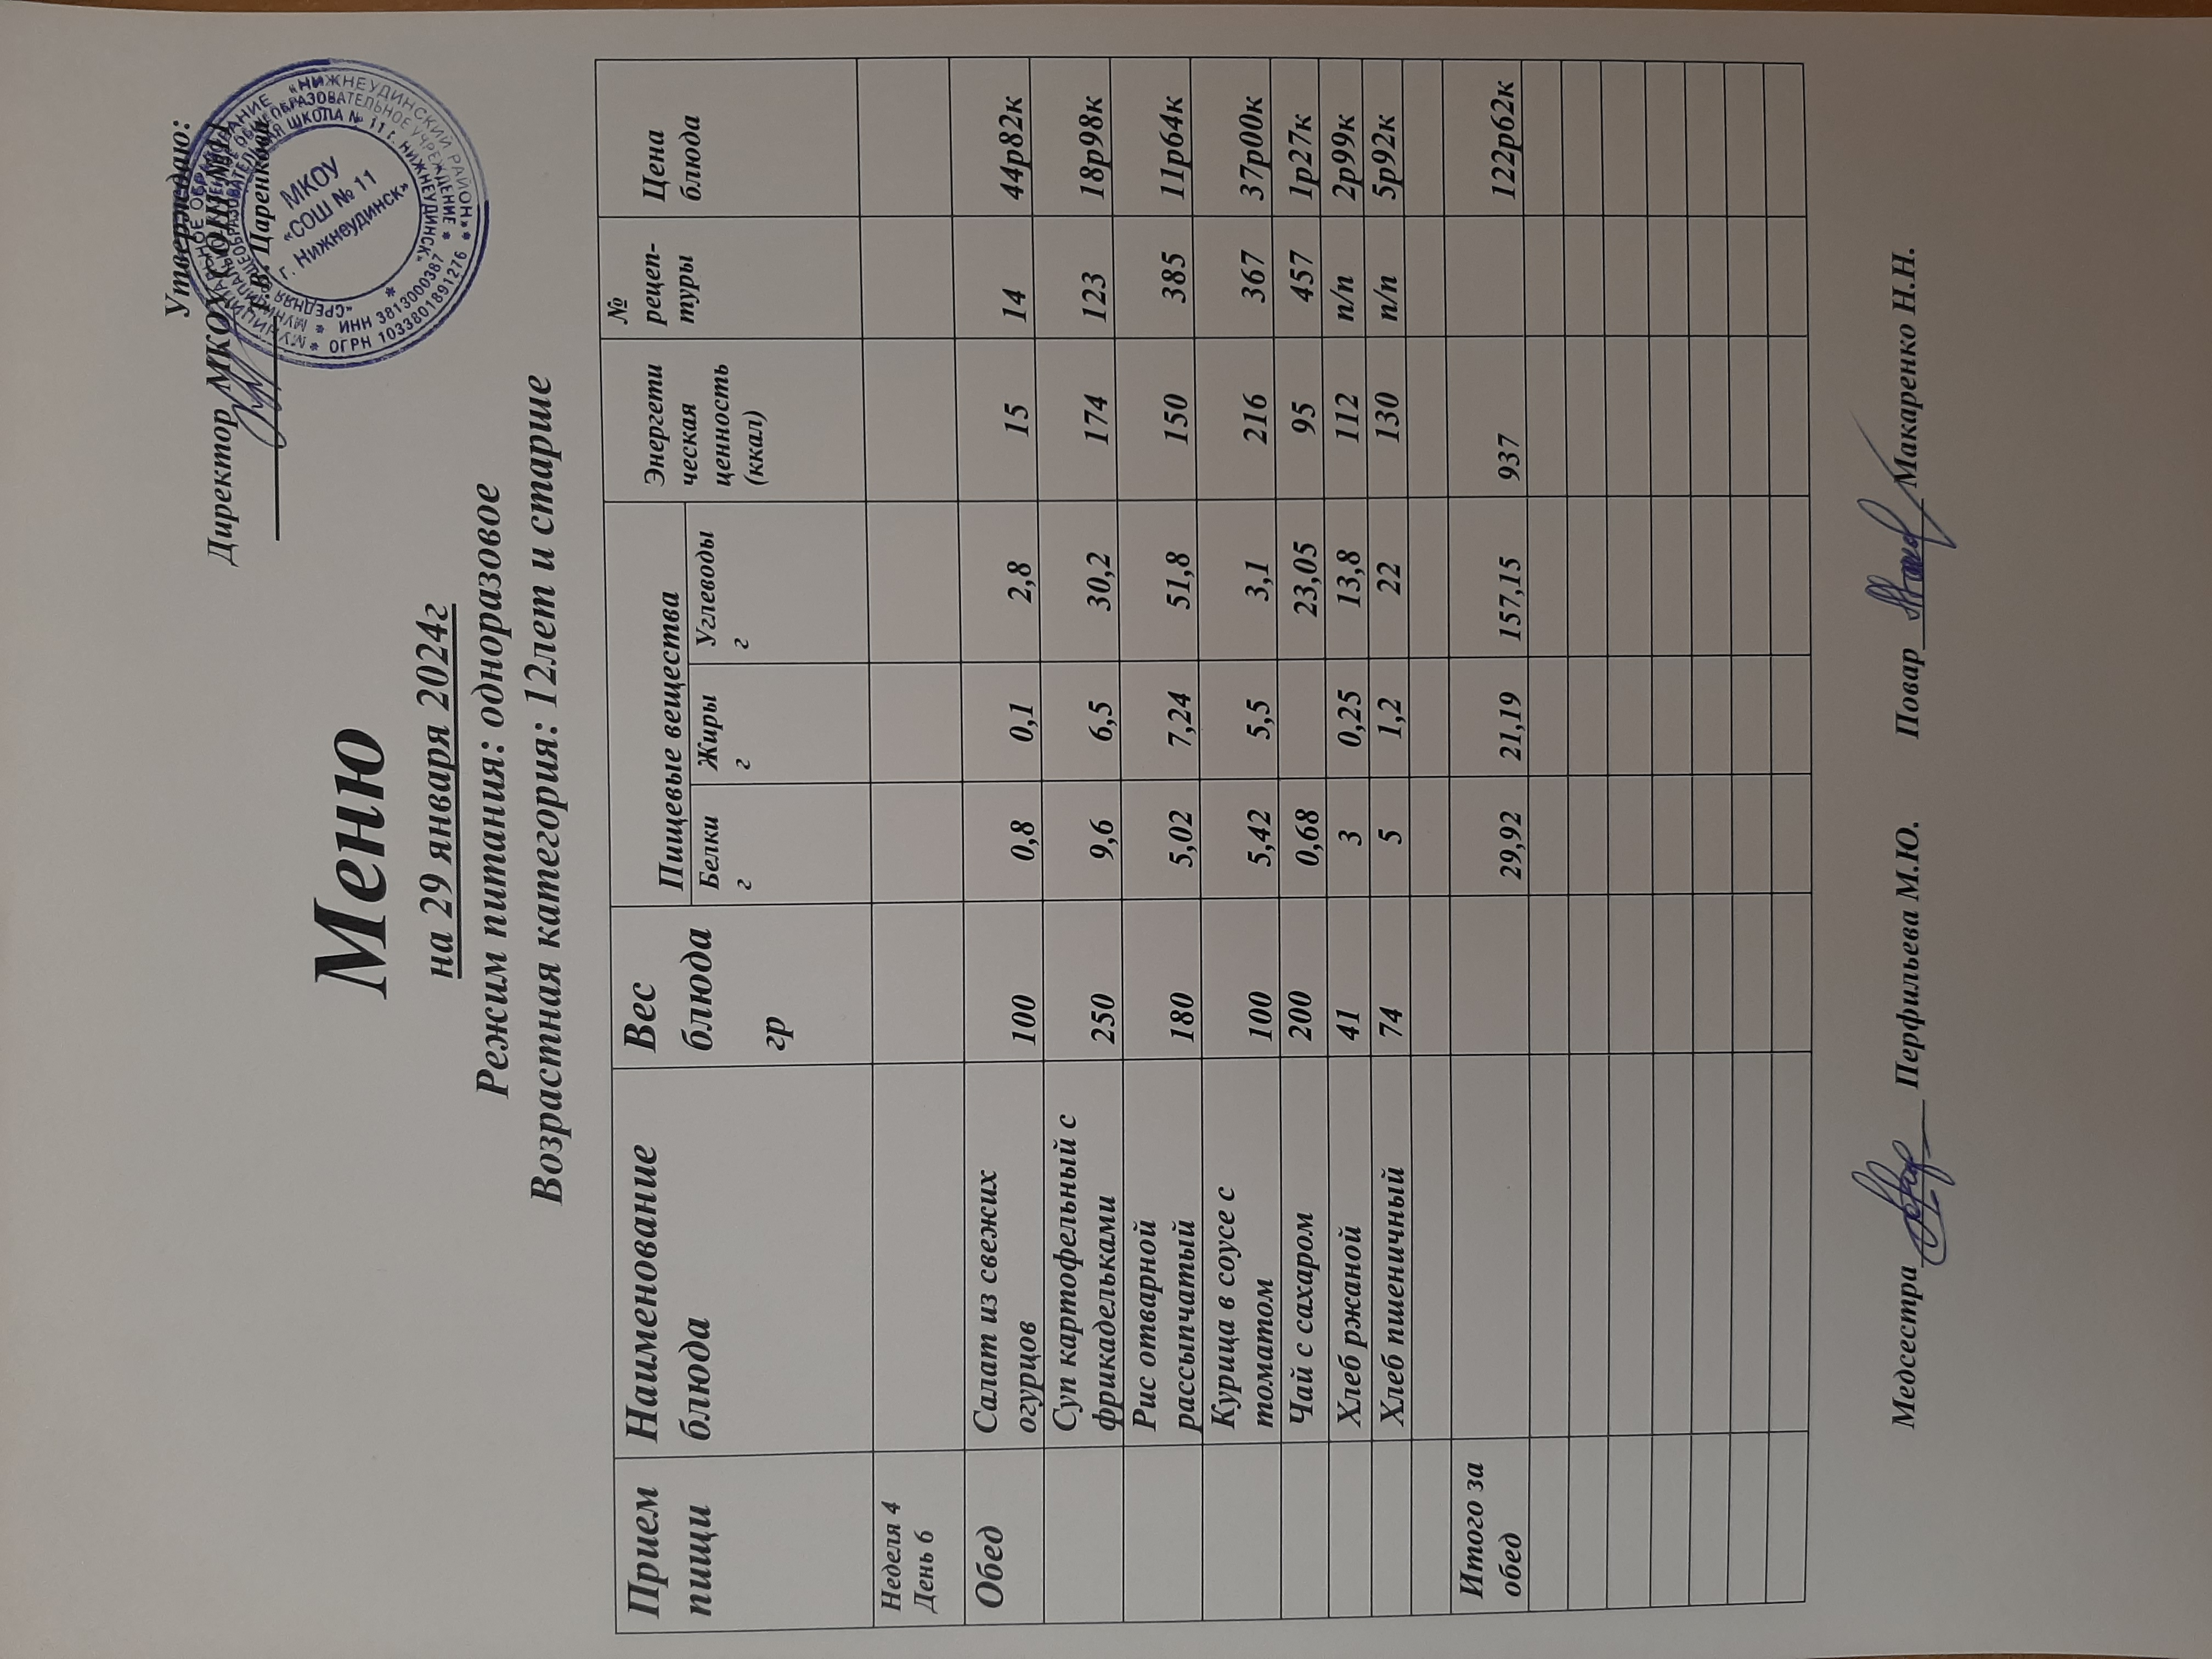 Утверждаю:
Директор МКОУ СОШ №11
Т.В. Царенкова
МУНИЦИПАЛЬНОЕ ОБРАЗОВАНИЕ «НИЖНЕУДИНСКИЙ РАЙОН»
ОГРН 1033801891276
МУНИЦИПАЛЬНОЕ ОБЩЕОБРАЗОВАТЕЛЬНОЕ УЧРЕЖДЕНИЕ
ИНН 3813000387
«СРЕДНЯЯ ОБЩЕОБРАЗОВАТЕЛЬНАЯ ШКОЛА № 11 г. НИЖНЕУДИНСК»
МКОУ
«СОШ № 11
г. Нижнеудинск»
Меню
на 29 января 2024г
Режим питания: одноразовое
Возрастная категория: 12лет и старше
Прием пищи Наименование блюда Вес блюда гр Пищевые вещества Энергети ческая ценность (ккал) № рецеп- туры Цена блюда
Белки г Жиры г Углеводы г
Неделя 4
День 6
Обед Салат из свежих огурцов 100 0,8 0,1 2,8 15 14 44р82к
Суп картофельный с фрикадельками 250 9,6 6,5 30,2 174 123 18р98к
Рис отварной рассыпчатый 180 5,02 7,24 51,8 150 385 11р64к
Курица в соусе с томатом 100 5,42 5,5 3,1 216 367 37р00к
Чай с сахаром 200 0,68 23,05 95 457 1р27к
Хлеб ржаной 41 3 0,25 13,8 112 п/п 2р99к
Хлеб пшеничный 74 5 1,2 22 130 п/п 5р92к
Итого за обед 29,92 21,19 157,15 937 122р62к
Медсестра Перфильева М.Ю. Повар Макаренко Н.Н.